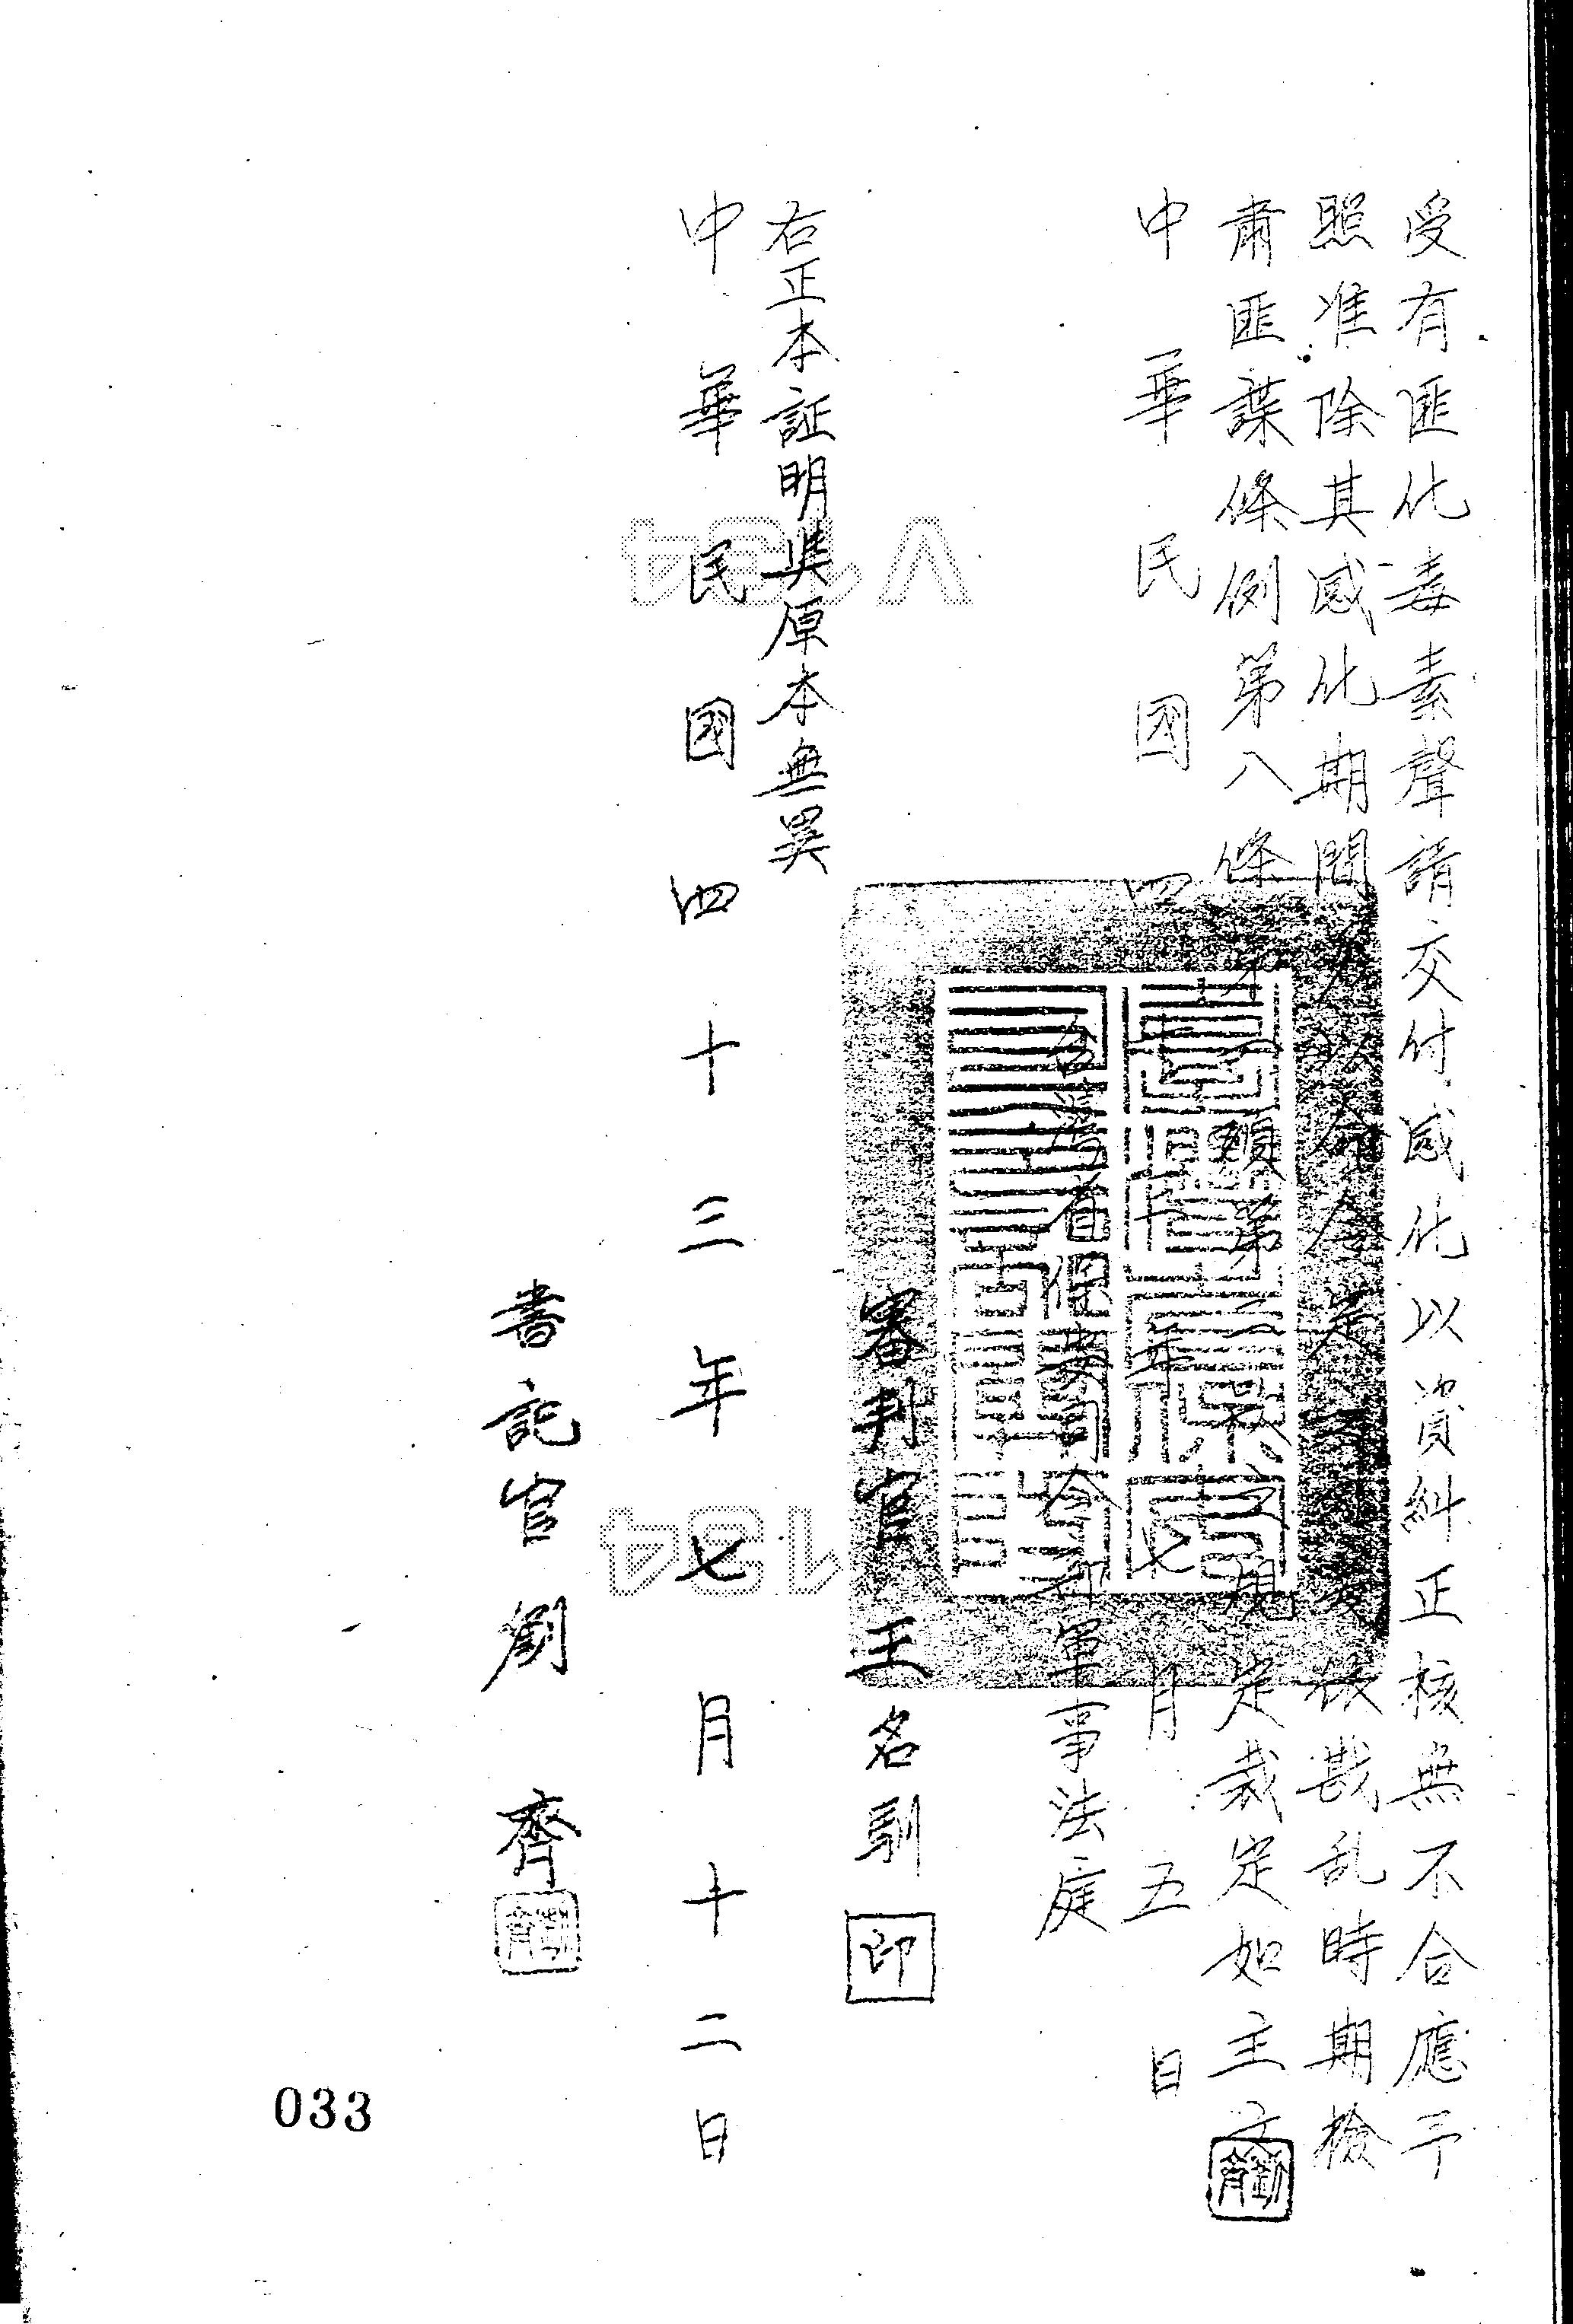 受有匪化毒素聲請交付感化以資糾正核無不合應予
照准除其感化期間另以命令定之外爰依戡乱時期檢
肅匪諜條例第八條第一項第二款之規定裁定如主文
中華民國四十三年七月五日
台灣省保安司令部軍事法庭
審判官王名馴
印
右正本証明與原本無異
中華民國四十三年七月十二日
書記官劉齊
033